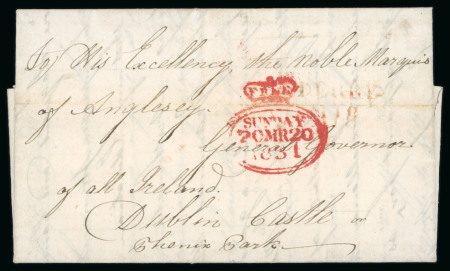 To His Excellency, the Noble Marquis
of Anglesey.
FREE
DERBY
SUNDAY
20MR20
1831
General Governor
of all Ireland.
Dublin Castle or
Phenix Park